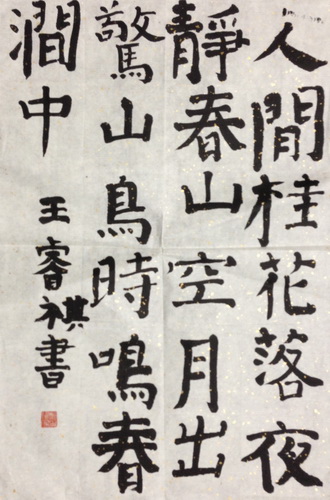 人間桂花落夜
靜春山空月出
驚山鳥時鳴春
澗中
王睿祺書